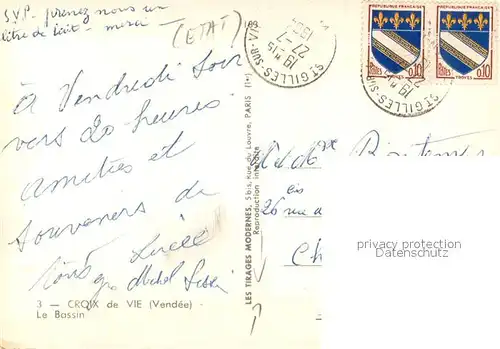 S.V.P. prenez nous un
litre de lait - merci -
(ETAT)
à Vendredi soir
vers 20 heures.
Amitiés et
souvenirs de
tous
3 — CROIX de VIE (Vendée) -
Le Bassin
LES TIRAGES MODERNES, 5 bis, Rue du Louvre, PARIS (1er)
Reproduction interdite
ST GILLES-SUR-VIE
19 H 15
27-7
ST GILLES-SUR-
19 H 15
27-7
REPUBLIQUE FRANÇAISE
POSTES 0,10
TROYES
REPUBLIQUE FRANÇAISE
POSTES 0,10
TROYES
M et Me
26 rue
privacy protection
Datenschutz